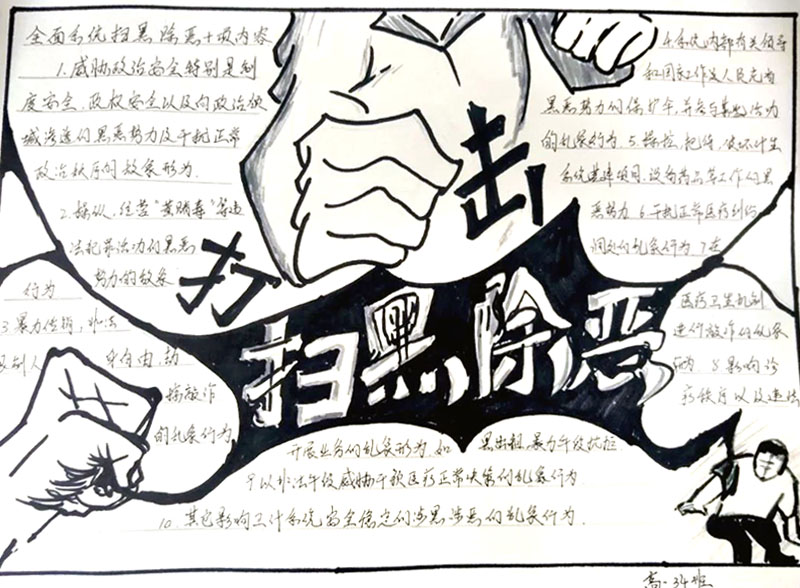 全面系统扫黑除恶十项内容
1.威胁政治安全特别是制
度安全、政权安全以及向政治领
域渗透的黑恶势力及干扰正常
政治秩序的放象形为.
2.操纵、经营“黄赌毒”等违
法犯罪活动的黑恶
势力的放象
行为
3 暴力传销、非法
制人 身自由、劫
持敲诈
的乱象行为
4.系统内部有关领导
和国家工作人员充当
黑恶势力的保护伞,并参与其活动
的乱象行为. 5. 操控、把持、破坏计生
系统基建项目、设备药品等工作的黑
恶势力 6. 干扰正常医疗
的乱象行为 7.
医疗卫生机制
进行敲诈的乱象
行为 8 影响诊
疗秩序以及违法
开展业务的乱象形为 如 黑出租 暴力手段抗拒
以非法手段威胁干扰医疗正常决策的乱象行为
10. 其它影响卫计系统安全稳定的涉黑涉恶的乱象行为.
打击
扫黑除恶
高一34班